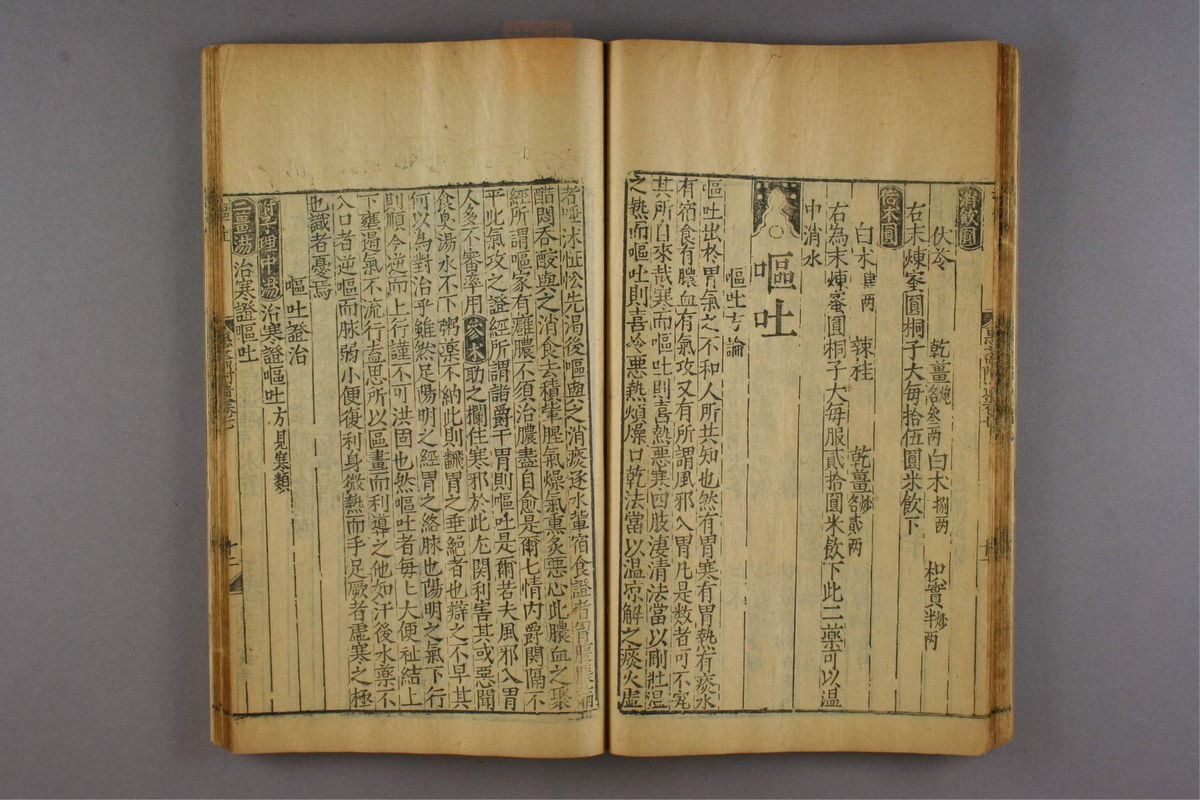 消飲圓
伏令 乾薑炮各叁兩 白术捌兩 枳實炒半兩
右末煉蜜圓桐子大每拾伍圓米飲下
倍术圓
白术兩 辣桂 乾薑炒各貳兩
右為末煉蜜圓桐子大每服貳拾圓米飲下此二藥可以温
中消水
嘔吐
嘔吐方論
嘔吐出於胃氣之不和人所共知也然有胃寒有胃熱有痰水
有宿食有膿血有氣攻又有所謂風邪入胃凡是数者可不究
其所自來哉寒而嘔吐則喜熱惡寒四肢凄清法當以剛壯温
之熱而嘔吐則喜冷惡熱煩燥口乾法當以温凉解之痰火虛
者唾沫怔忪先渴後嘔與之消痰逐水輩宿食證者胃脘脹滿
醋悶吞酸與之消食去積輩腥氣燥氣熏炙惡心此膿血之聚
經所謂嘔家有癰膿不須治膿盡自愈是爾七情内爵関隔不
平此氣攻之證經所謂諸爵干胃則嘔吐是爾若夫風邪入胃
人多不審率用參术助之攔住寒邪於此尤関利害其或惡聞
食臭湯水不下粥藥不納此則飜胃之垂絶者也辯之不早其
何以為對治乎雖然足陽明之經胃之絡脉也陽明之氣下行
則順今逆而上行謹不可洪固也然嘔吐者每々大便祕結上
下壅遏氣不流行盍思所以區畫而利導之他如汗後水藥不
入口者逆嘔而脉弱小便復利身微熱而手足厥者虛寒之極
也識者憂焉
嘔吐證治
理中湯治寒證嘔吐方見寒類
二薑湯治寒證嘔吐